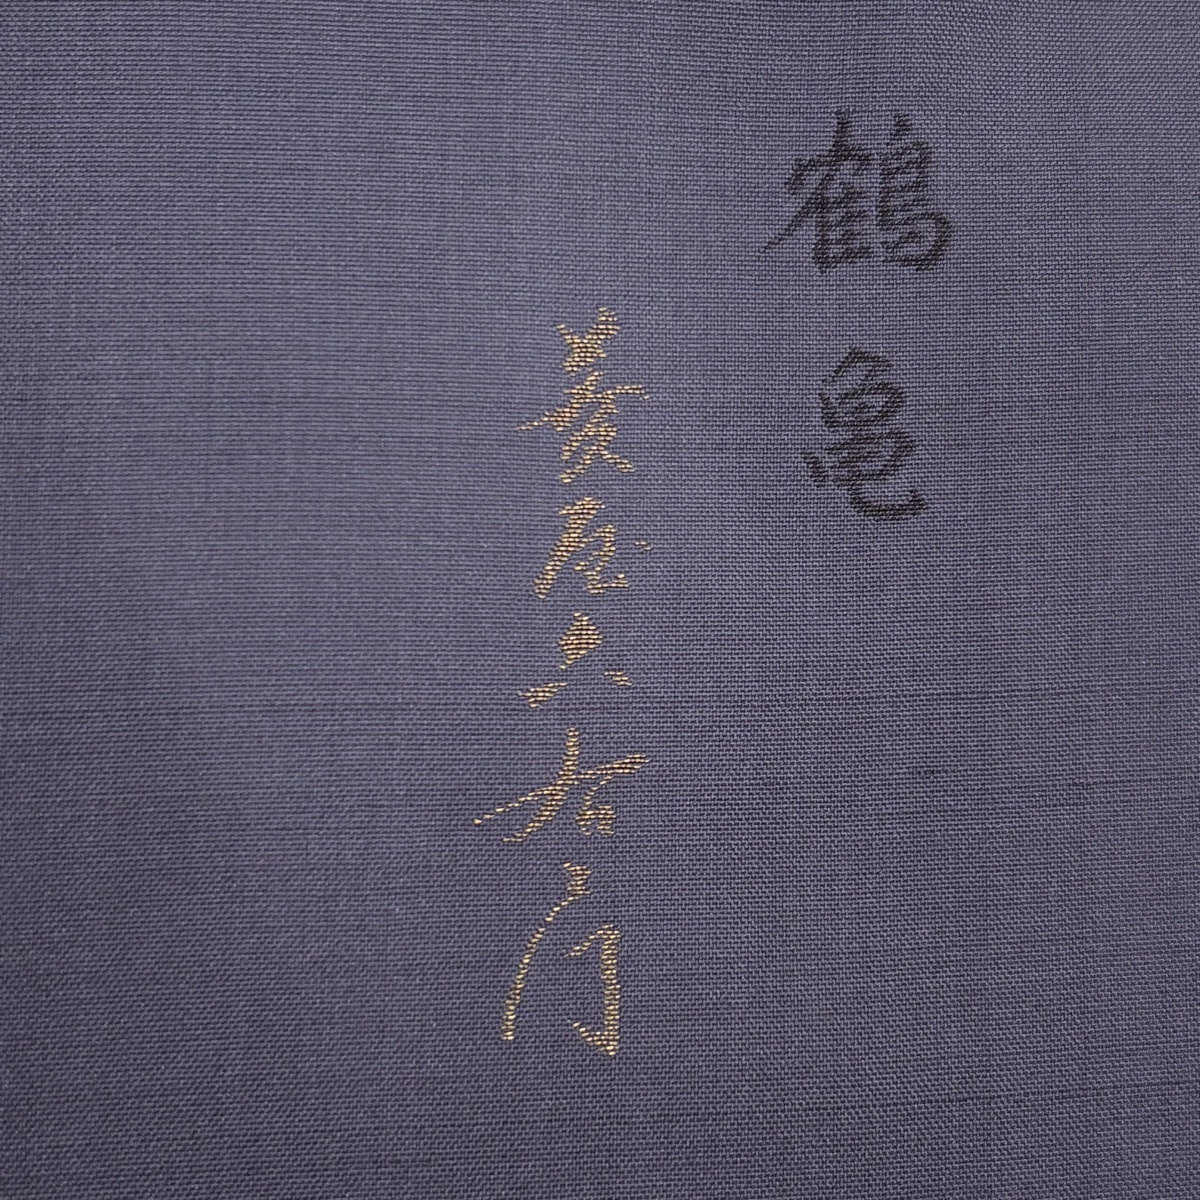 鶴亀
菱屋六右門